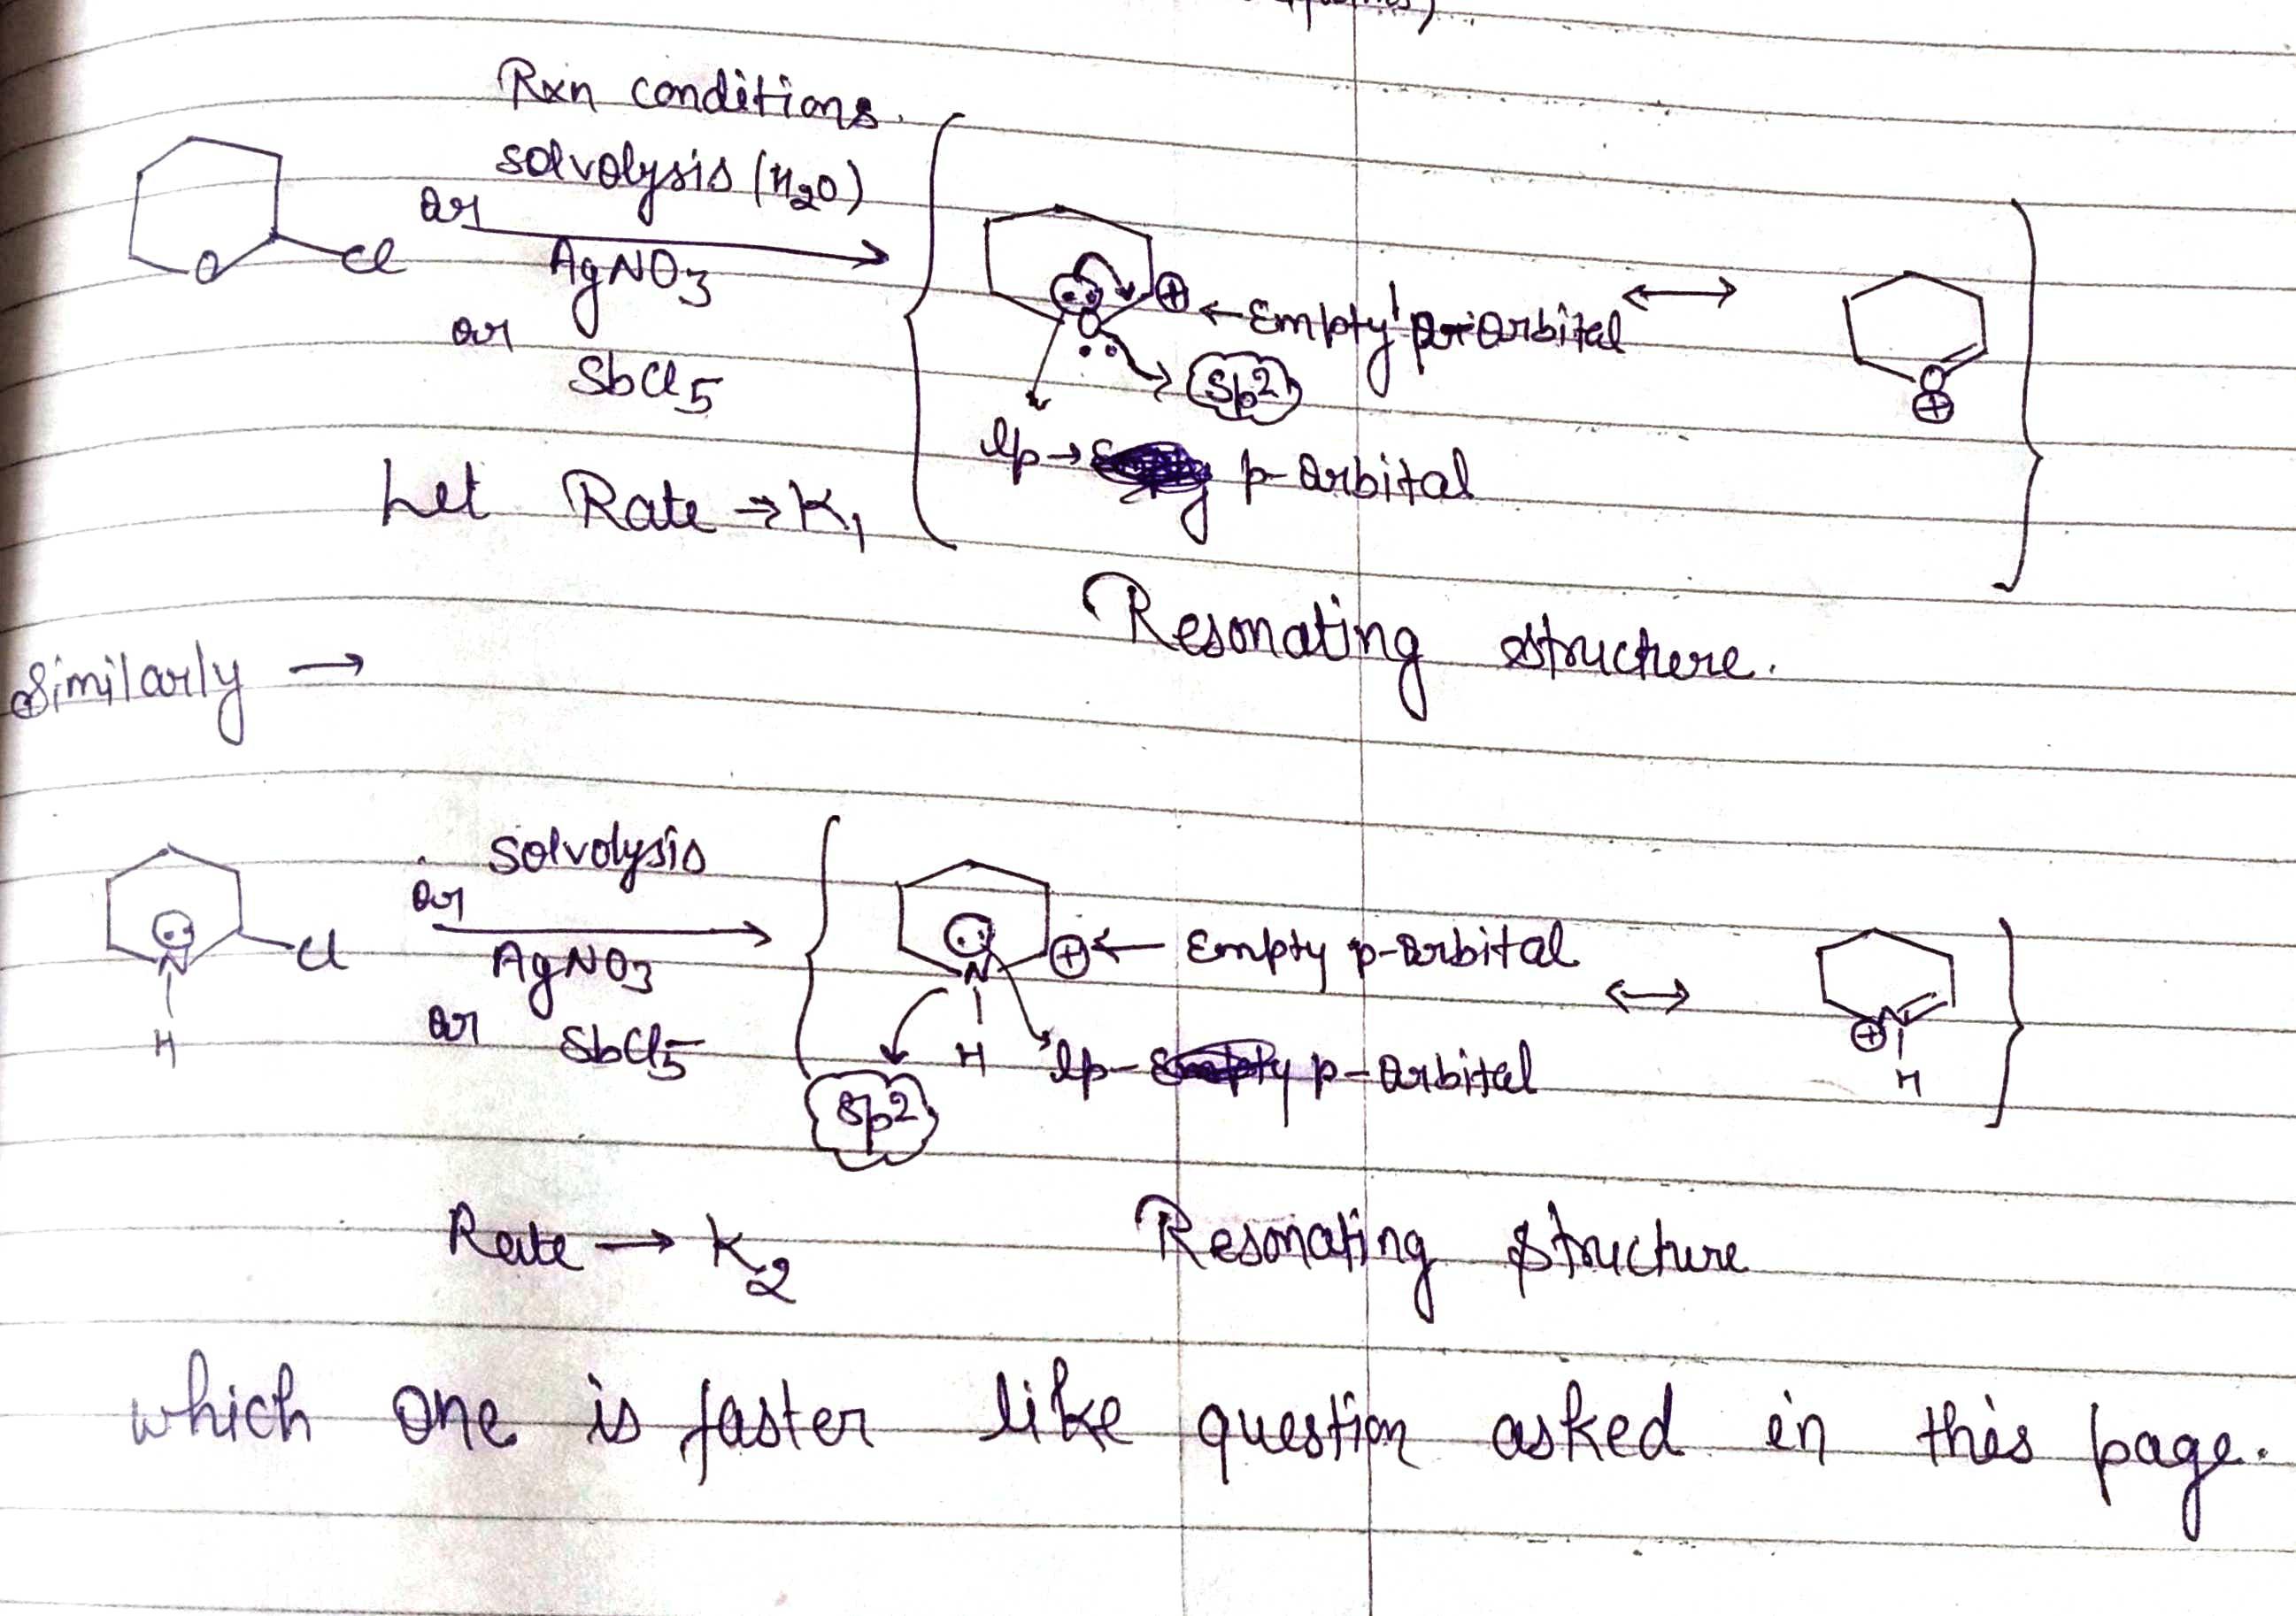 Rxn conditions.
solvolysis (H2O)
or
AgNO3
or
SbCl5
O
Cl
O
⊕ ← Empty p-orbital ↔
sp2
lp → p-orbital
O
⊕
Let Rate → K1
Resonating structure.
Similarly →
solvolysis
or
AgNO3
or
SbCl5
N
H
Cl
N
H
⊕ ← Empty p-orbital ↔
sp2
lp - p-orbital
⊕ N
H
Rate → K2
Resonating structure
which one is faster like question asked in this page.